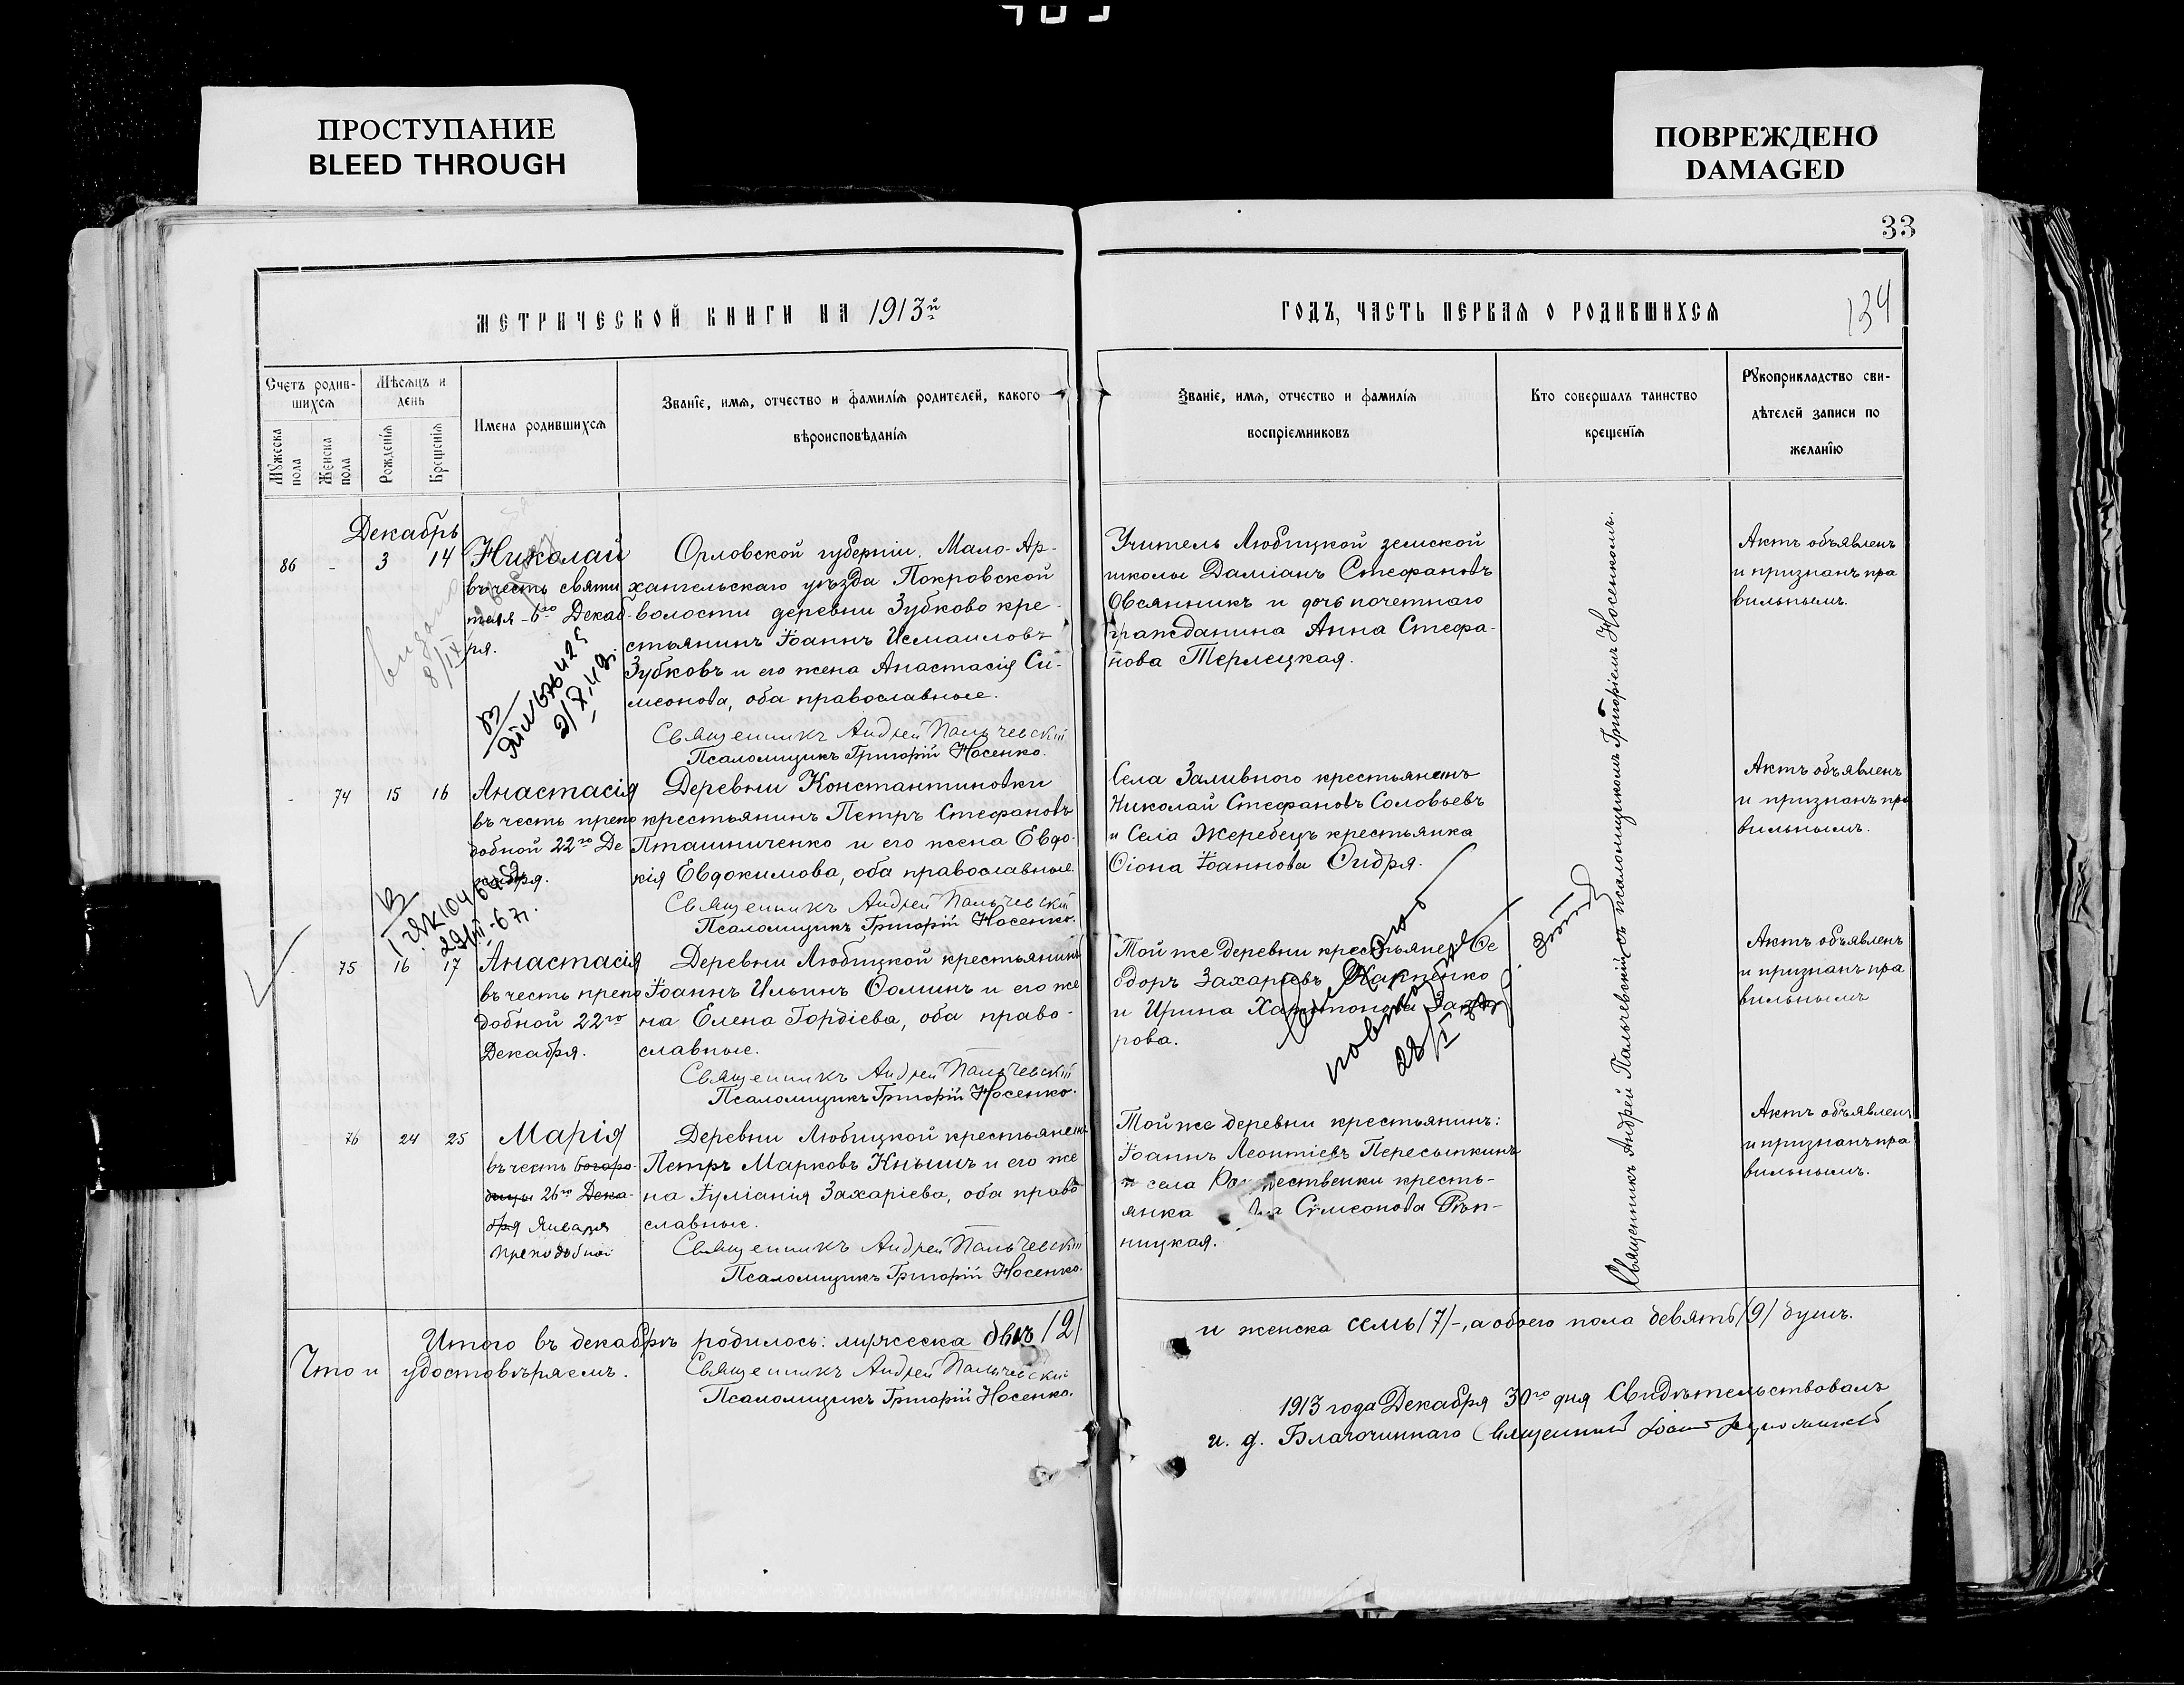 ПРОСТУПАНИЕ
BLEED THROUGH
ПОВРЕЖДЕНО
DAMAGED
33
134
МЕТРИЧЕСКОЙ КНИГИ НА 1913й
ГОДЪ, ЧАСТЬ ПЕРВАЯ О РОДИВШИХСЯ
Счетъ родив-
шихся
Мужеска
пола
Женска
пола
Мѣсяцъ и
день
Рожденія
Крещенія
Имена родившихся
Званіе, имя, отчество и фамилія родителей, какого
вѣроисповѣданія
Званіе, имя, отчество и фамилія
воспріемниковъ
Кто совершалъ таинство
крещенія
Рукоприкладство сви-
дѣтелей записи по
желанію
Декабрь
86 - 3 14
Николай
въ честь святи
теля 6го Декаб-
ря.
Орловской губерніи. Мало-Ар-
хангельскаго уѣзда Покровской
волости деревни Зубково кре-
стьянинъ Іоаннъ Исмаиловъ
Зубковъ и его жена Анастасія Си-
меонова, оба православные.
Священникъ Андрей Пальчевскій
Псаломщикъ Григорій Носенко.
Учитель Любицкой земской
школы Даміанъ Стефановъ
Овсянникъ и дочь почетнаго
гражданина Анна Стефа-
нова Терлецкая.
Актъ объявленъ
и признанъ пра
вильнымъ.
- 74 15 16
Анастасія
въ честь препо
добной 22го Де
кабря.
Деревни Константиновки
крестьянинъ Петръ Стефановъ
Пташниченко и его жена Евдо-
кія Евдокимова, оба православные.
Священникъ Андрей Пальчевскій
Псаломщикъ Григорій Носенко.
Села Заливного крестьянинъ
Николай Стефановъ Соловьевъ
и Села Жеребецъ крестьянка
Іоаннова
Актъ объявленъ
и признанъ пра
вильнымъ.
- 75 16 17
Анастасія
въ честь препо
добной 22го
Декабря.
Деревни Любицкой крестьянинъ
Іоаннъ Ильинъ Ѳоминъ и его же
на Елена Гордіева, оба право-
славные.
Священникъ Андрей Пальчевскій
Псаломщикъ Григорій Носенко.
Той же деревни крестьяне: Ѳе
одоръ Захаріевъ Карпенко
и Ирина Харитонова Заха
рова.
Актъ объявленъ
и признанъ пра
вильнымъ
76 24 25
Марія
въ честь Богоро-
дицы 26го Дека-
бря Января
Преподобной
Деревни Любицкой крестьянинъ
Петръ Марковъ Кнышъ и его же
на Іуліанія Захаріева, оба право
славные.
Священникъ Андрей Пальчевскій
Псаломщикъ Григорій Носенко.
Той же деревни крестьянинъ:
Іоаннъ Леонтіевъ Пересыпкинъ
и села Рождественки кресть-
янка Симеонова Рѣп-
ницкая.
Актъ объявленъ
и признанъ пра
вильнымъ.
Священникъ Андрей Пальчевскій съ псаломщикомъ Григоріемъ Носенкомъ.
Итого въ декабрѣ родилось: мужеска двѣ /2/
и женска семь /7/-, а обоего пола девять /9/ душъ.
Что и удостовѣряемъ.
Священникъ Андрей Пальчевскій
Псаломщикъ Григорій Носенко.
1913 года Декабря 30го дня Свидѣтельствовалъ
и. д. Благочиннаго Священникъ